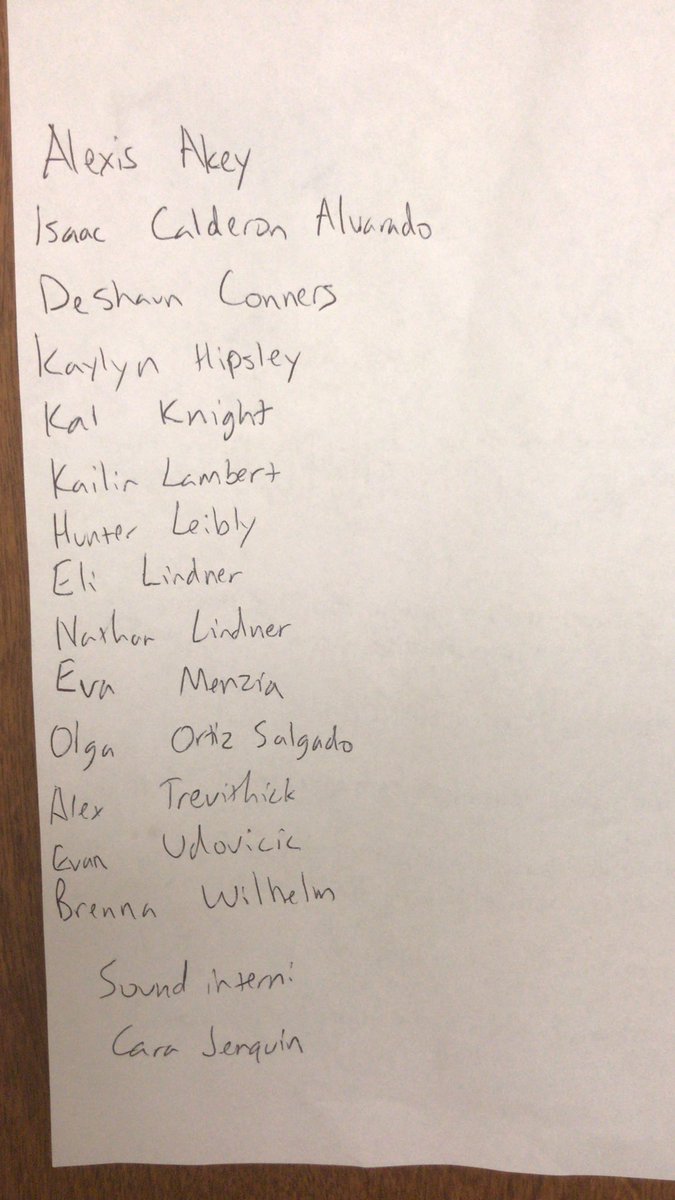 Alexis Akey
Isaac Calderon Alvarado
Deshaun Conners
Kaylyn Hipsley
Kal Knight
Kailin Lambert
Hunter Leibly
Eli Lindner
Nathan Lindner
Eva Menzia
Olga Ortiz Salgado
Alex Trevithick
Evan Udovicic
Brenna Wilhelm
Sound intern:
Cara Jenquin